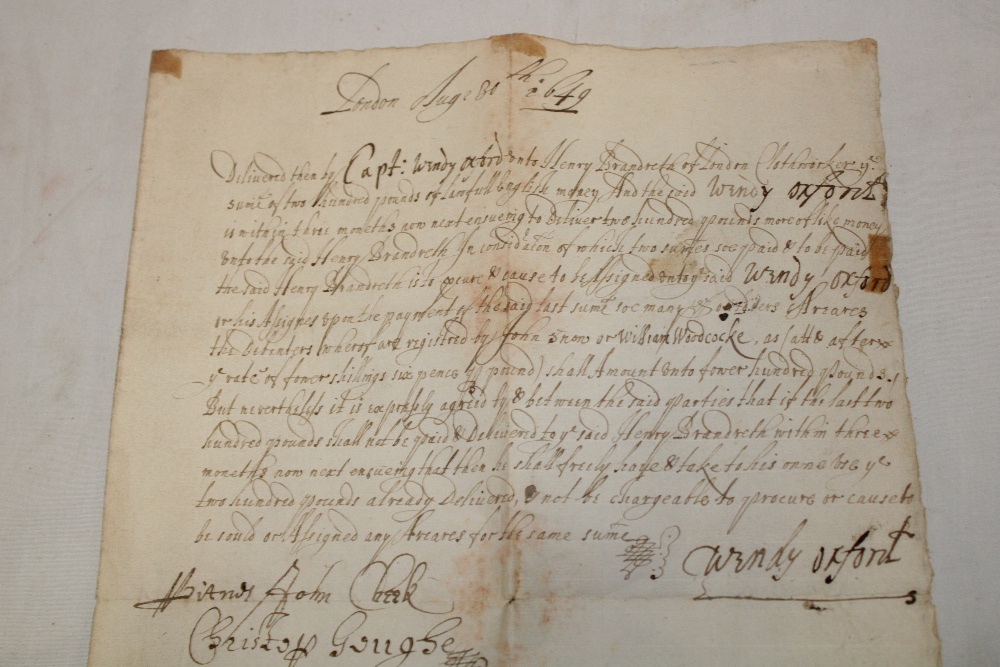 London Aug: 30th: 1649
Delivered then by Capt: Wendy Oxford unto Henry Brandreth of London Clothworker ye
sume of two hundred pounds of lawfull English money And the said Wendy Oxford
is within three moneths now next ensueing to deliver two hundred pounds more of like money
unto the said Henry Brandreth In consideracon of which two sumes soe paid & to be paid
the said Henry Brandreth is to procure & cause to be Assigned unto ye said Wendy Oxford
or his Assignes upon the payment of the said last sume soe many Areares
the Debenters wherof are registred by John Snow or William Woodcocke, as (att & after
ye rate of fower shillings six pence p pound) shall Amount unto fower hundred pounds.
But neverthelesse it is expressly agreed by & between the said parties that if the last two
hundred pounds shall not be paid & delivered to ye said Henry Brandreth within three
moneths now next ensueing that then he shall freely have & take to his owne use ye
two hundred pounds already delivered, & not be chargeable to procure or cause to
be sould or Assigned any Areares for the same sume
Wendy Oxford
Witnes John Cheek
Christop Goughe